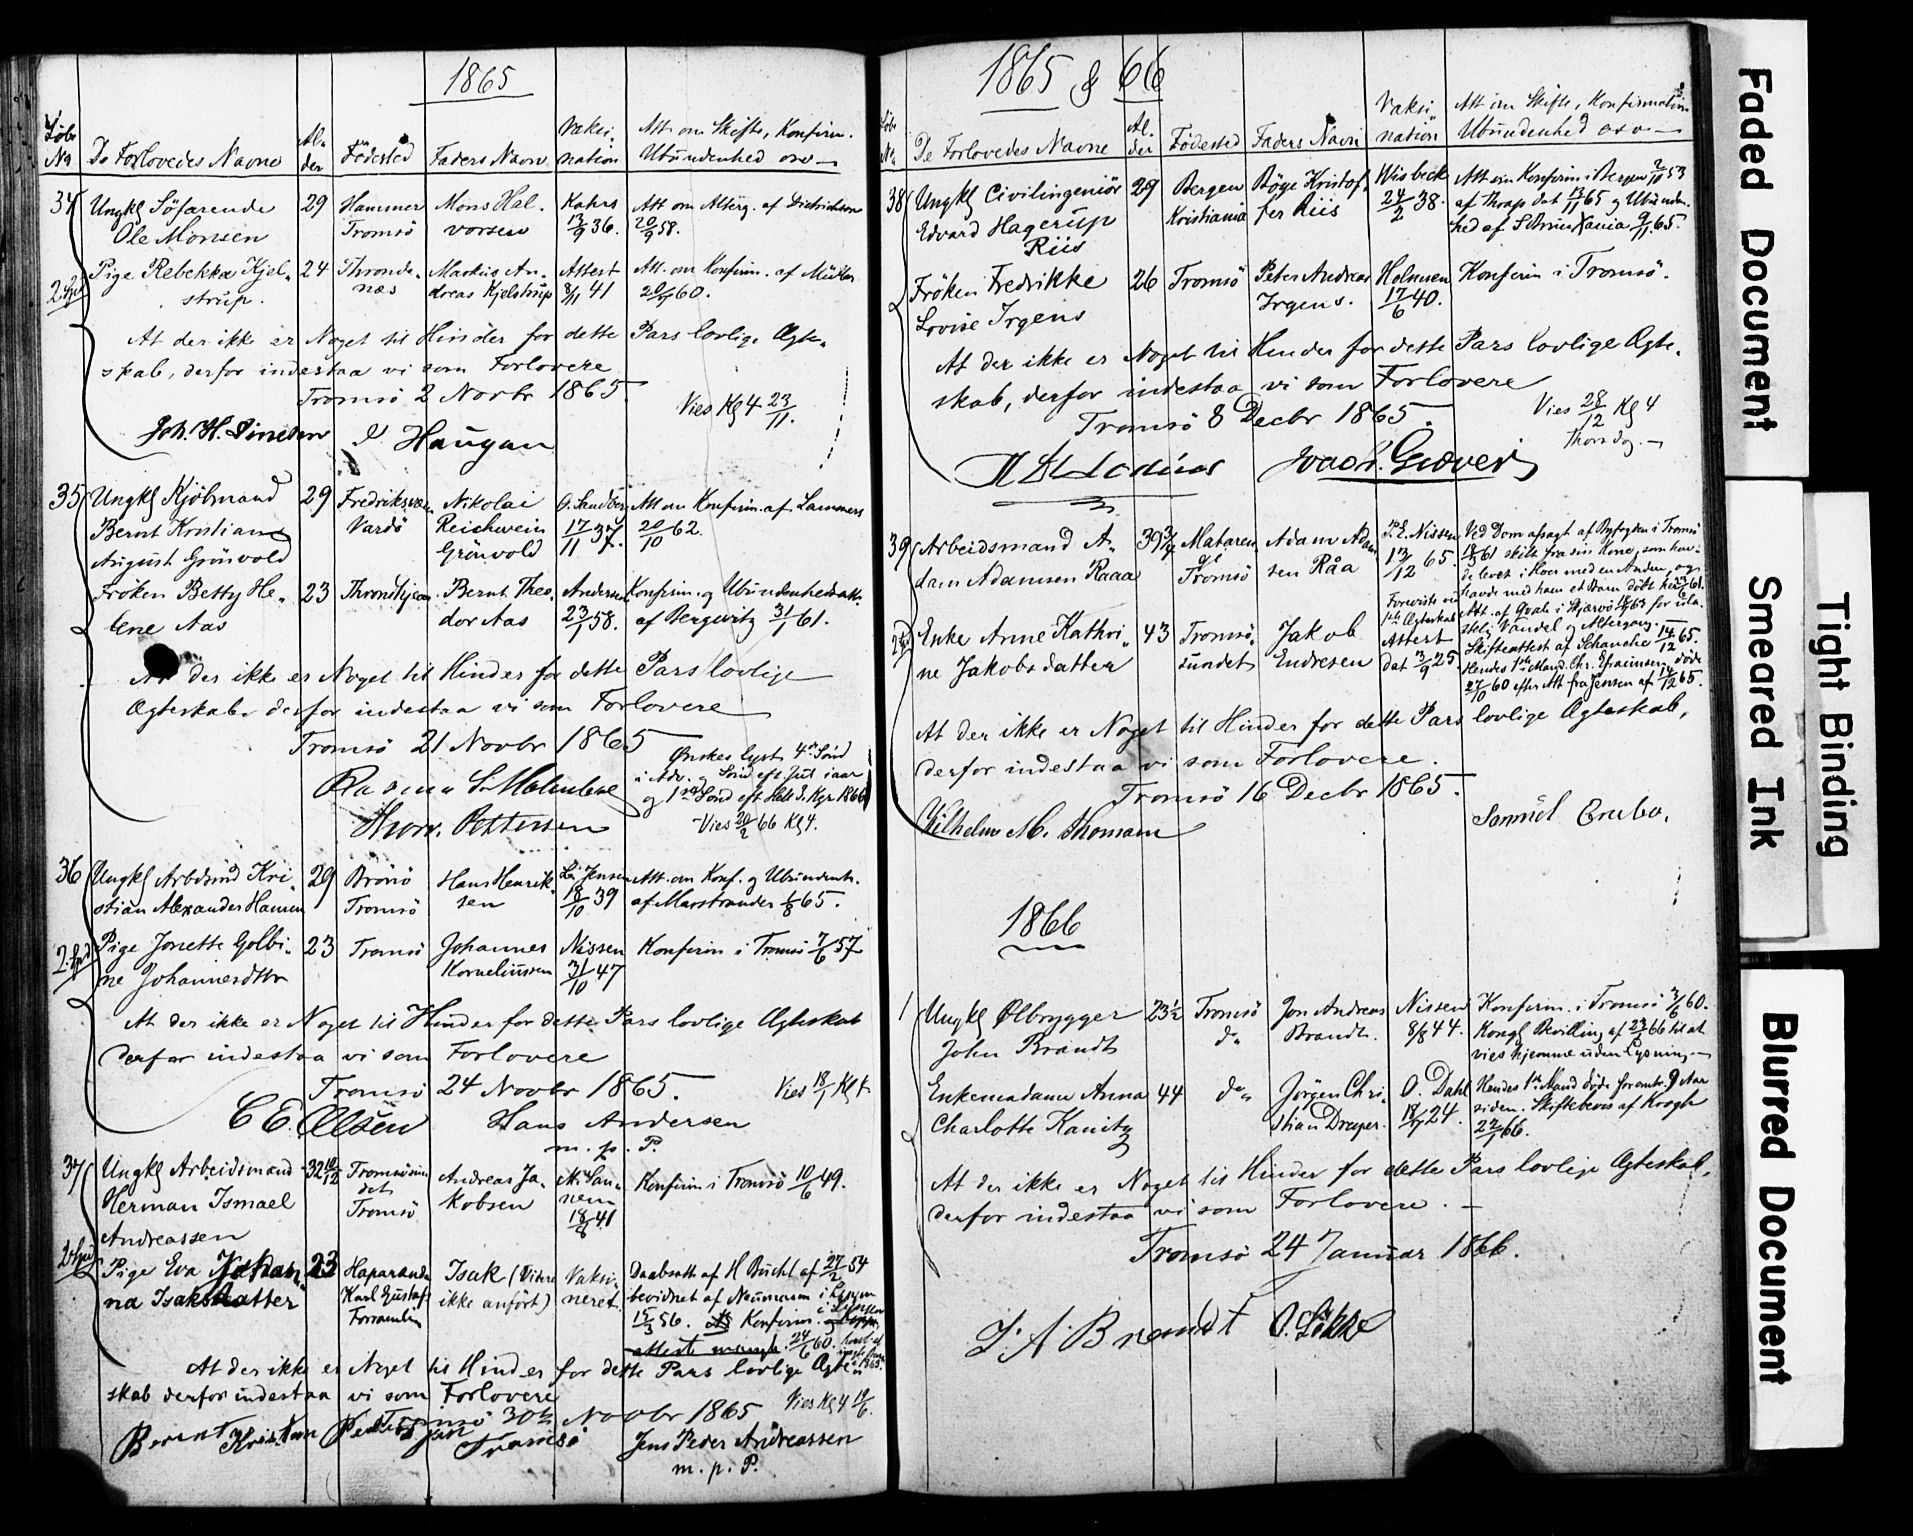 1865
Löbe No De Forlovedes Navne Al-der Födested Faders Navn Vaksi-nation Att om Skifte, Konfirm. Ubundenhed osv
34 Ungkl Söfarende 29 Hammer Mons Hal- Att om Alterg. af Dietrichson
Ole Monsen Tromsö vorsen 13/9 36. 20/9 58.
Pige Rebekka Kjel- 24 Throndе- Markus An- Attest Att. om Konfirm. af Müller
strup. næs dreas Kjelstrup 8/11 41 60.
At der ikke er Noget til Hinder for dette Pars lovlige Ægte-
skab, derfor indestaa vi som Forlovere
Tromsö 2 Novbr 1865
Vies Kl 4 23/11.
Haugan
35 Ungkl Kjöbmand 29 Fredriksværn Nikolai G. Sandberg Att om Konfirm. af Lammers
Bernt Kristian Vardö Reichwein 17/11 37. 20/10 62.
August Grönvold Grönvold
Fröken Betty He- 23 Throndhjem Bernt Theo- Andersen Konfirm. og Ubundenhedsatt.
lene Aas dor Aas 23/1 58. af Bergwitz 31/1 61.
At der ikke er Noget til Hinder for dette Pars lovlige
Ægteskab, derfor indestaa vi som Forlovere
Tromsö 21 Novbr 1865
Ønskes lyst 4de Sönd
i Adv. og Sönd eft. Jul iaar
og 1ste Sönd eft Hell 3. Kgr 1866
Vies 20/2 66 Kl 4.
Thorv. Pettersen
36 Ungkl Arbdsmd Kri- 29 Brönö Hans Henrik- Jensen Att. om Konf. og Ubundenh.
stian Alexander Hansen Tromsö sen 18/10 39 af Marstrander 1/8 65.
Pige Jonette Golbi- 23 Tromsö Johannes Nissen Konfirm i Tromsö 7/6 57
ne Johannesdttr Korneliussen 31/10 47
At der ikke er Noget til Hinder for dette Pars lovlige Ægteskab
derfor indestaa vi som Forlovere
Tromsö 24 Novbr 1865.
Vies 18/1 Kl 4
C E Olsen Hans Andersen
m. p. P.
37 Ungkl Arbeidsmand 32 10/12 Tromsösun- Andreas Ja- Konfirm i Tromsö 10/6 49.
Herman Ismael det Tromsö kobsen 18/8 41
Andreassen
Pige Eva Johan- 23 Haparanda Isak (Videre Vaksi- Daabsatt af H Buch af 27/2 54
na Isaksdatter Karl Gustafs ikke anfört) neret. bevidnet af Neumann i Lyngen
Forsamling 15/3 56. Konfirm. i Lyngen
24/6 60.
At der ikke er Noget til Hinder for dette Pars lovlige Ægte-
skab derfor indestaa vi som Forlovere
Tromsö 30te Novbr 1865
Vies Kl 4
Jens Peder Andreassen
m. p. P.
1865 & 66
Löbe No. De Forlovedes Navne Al-der Födested Faders Navn Vaksi-nation Att om Skifte, Konfirmation Ubundenhed osv
38 Ungkl Civilingeniör 29 Bergen Böye Kristof- Wisbeck Att om Konfirm i Bergen 2/10 53
Edvard Hagerup Kristiania fer Riis 24/2 38. af Thrap dat 13/11 65 og Ubunden-
Riis hed af 9/11 65.
Fröken Fredrikke 26 Tromsö Peter Andreas Holmsen Konfirm i Tromsö.
Lovise Irgens Irgens. 17/6 40.
At der ikke er Noget til Hinder for dette Pars lovlige Ægte-
skab, derfor indestaa vi som Forlovere
Tromsö 8 Decbr 1865.
Vies 28/12 Kl 4
Thorsdag.
39 Arbeidsmand A- 39 3/4 Mataren Adam Adam P.E. Nissen Ved Dom afsagt af Byfogden i Tromsö
dam Adamsen Raaa Tromsö sen Råa 13/12 65. 18/3 61 skilt fra sin Kone, som hav-
de levet i Hoer med en Anden, og
havde med ham et Barn döbt
Att. af Qvale i Skjærvö
Enke Anne Kathri- 43 Tromsö- Jakob Attest Vandel og Altergang.
ne Jakobsdatter sundet Endresen dat 3/9 25. Skifteattest af Schanche 14/12 65.
Hendes 1ste Mand Chr. Efraimsen döde
27/10 60 efter Att fra Jensen af 14/12 65.
At der ikke er Noget til Hinder for dette Pars lovlige Ægteskab,
derfor indestaa vi som Forlovere.
Tromsö 16 Decbr 1865.
Vilhelm M. Thomsen
1866
1 Ungkl Ølbrygger 23 1/2 Tromsö Jon Andreas Nissen Konfirm. i Tromsö 3/6 60.
John Brandt do Brandt. 8/8 44. Kongl Bevilling af 23/1 66 til at
vies hjemme uden Lysning
Enkemadame Anna 44 do Jörgen Chri- O. Dahl Hendes 1ste Mand döde foromtr. 9 Aar
Charlotte Kanitz stian Dreyer. 18/7 24. siden. Skiftebevis af Krogh
22/1 66.
At der ikke er Noget til Hinder for dette Pars lovlige Ægteskab,
derfor indestaa vi som Forlovere.
Tromsö 24 Januar 1866.
J. A. Brandt O. Lökke
Faded Document
Smeared Ink
Tight Binding
Blurred Document